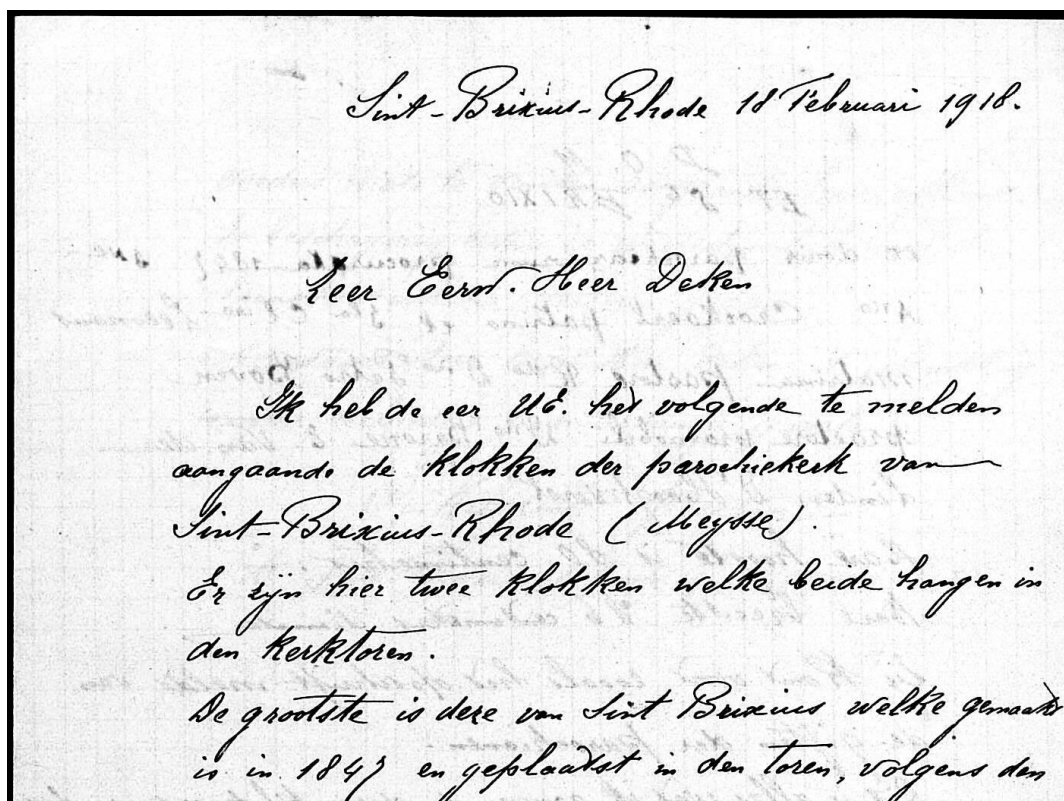 Sint-Brixius-Rhode 18 Februari 1918.
Zeer Eerw. Heer Deken
Ik heb de eer UE. het volgende te melden
aangaande de klokken der parochiekerk van
Sint-Brixius-Rhode (Meysse).
Er zijn hier twee klokken welke beide hangen in
den kerktoren.
De grootste is deze van Sint Brixius welke gemaakt
is in 1847 en geplaatst in den toren, volgens den